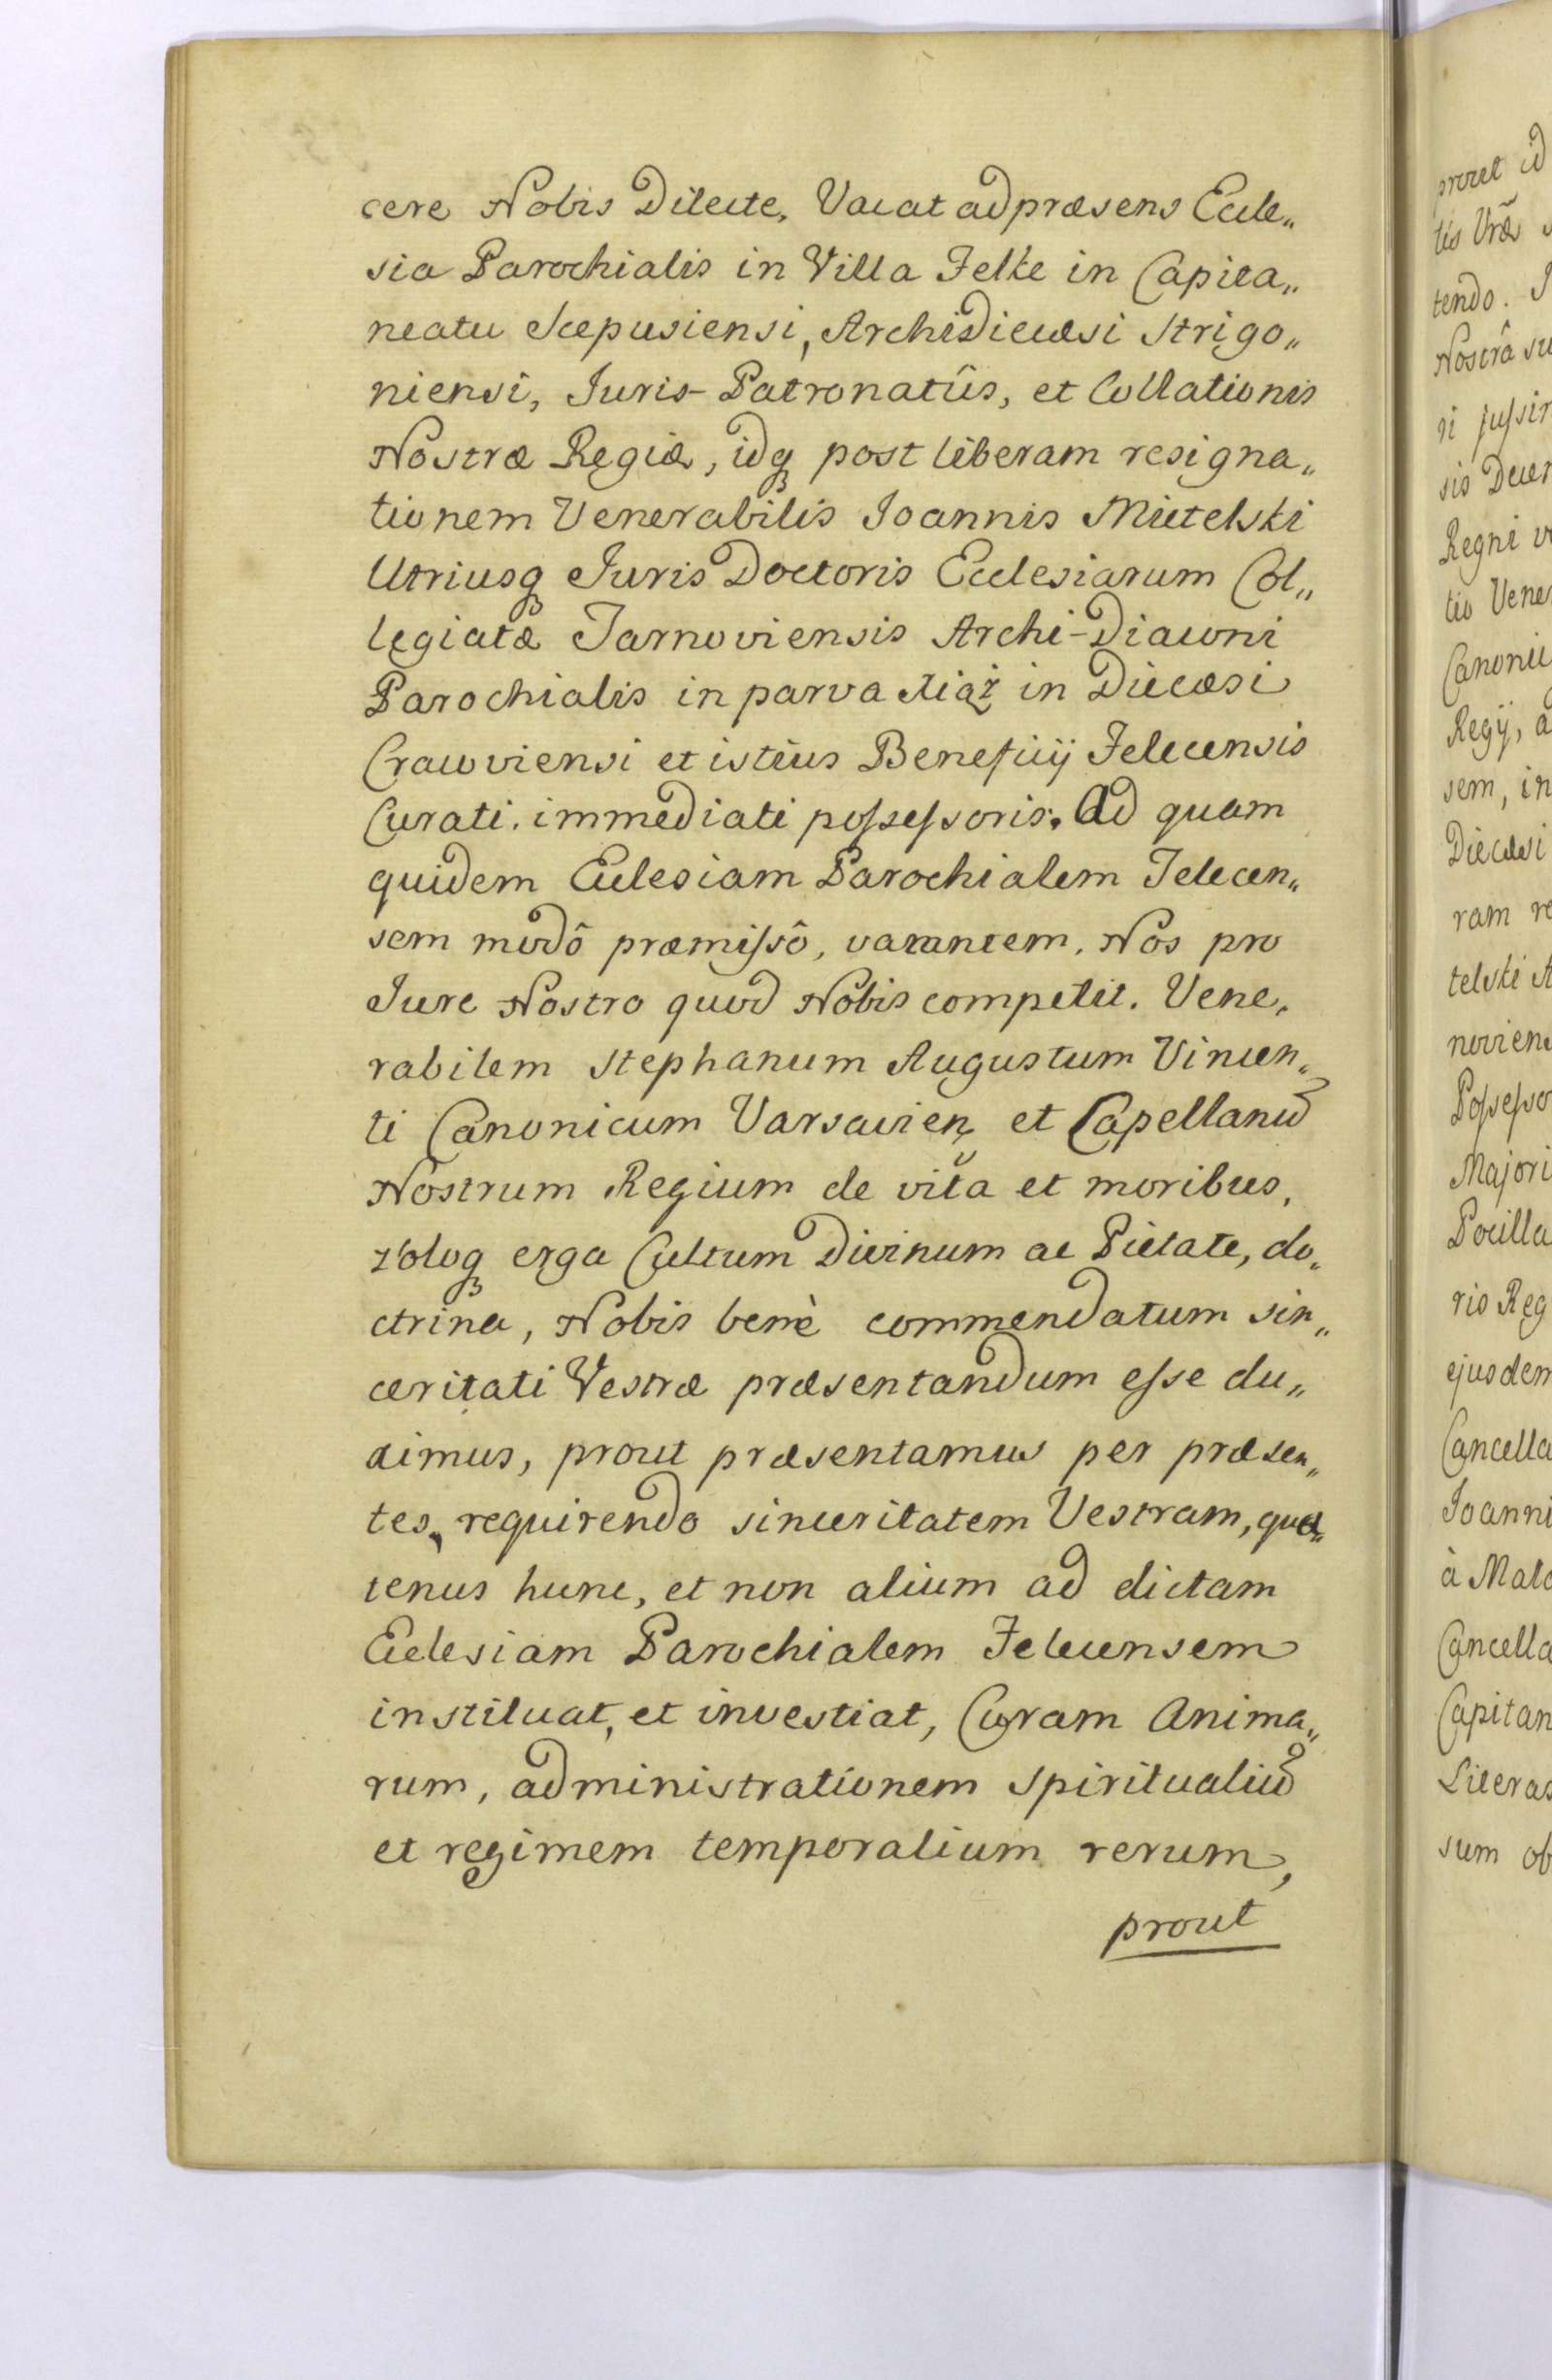 cere Nobis Dilecte, Vacat ad præsens Eccle„
sia Parochialis in Villa Felke in Capita„
neatu Scepusiensi, Archidiecæsi Strigo„
niensi, Juris-Patronatûs, et Collationis
Nostræ Regiæ, idq post liberam resigna„
tionem Venerabilis Joannis Mietelski
Utriusq Juris Doctoris Ecclesiarum Col„
legiatæ Tarnoviensis Archi-Diaconi
Parochialis in parva Xiąż in Diecæsi
Cracoviensi et istius Beneficij Felecensis
Curati. immediati possessoris. Ad quam
quidem Ecclesiam Parochialem Felecen„
sem modô præmissô, vacantem. Nos pro
Jure Nostro quod Nobis competit. Vene„
rabilem Stephanum Augustum Vincen„
ti Canonicum Varsavien et Capellanu
Nostrum Regium de vita et moribus,
zeloq erga Cultum Divinum ac Pietate, do„
ctrina, Nobis benè commendatum sin„
ceritati Vestræ præsentandum esse du„
ximus, prout præsentamus per præsen„
tes, requirendo sinceritatem Vestram, qua„
tenus hunc, et non alium ad dictam
Ecclesiam Parochialem Felecensem
instituat, et investiat, Curam Anima„
rum, administrationem spiritualiu
et regimem temporalium rerum,
prout
prout id
tis Vræ
tendo.
Nostrâ su
ri jussim
sis Decem
Regni v
tio Vene
Canonic
Regij, a
sem, in
Diecæsi
ram re
telski A
novien
Possesso
Majori
Pocilla
rio Reg
ejusdem
Cancella
Joanni
à Mala
Cancella
Capitan
Literas
sum ob